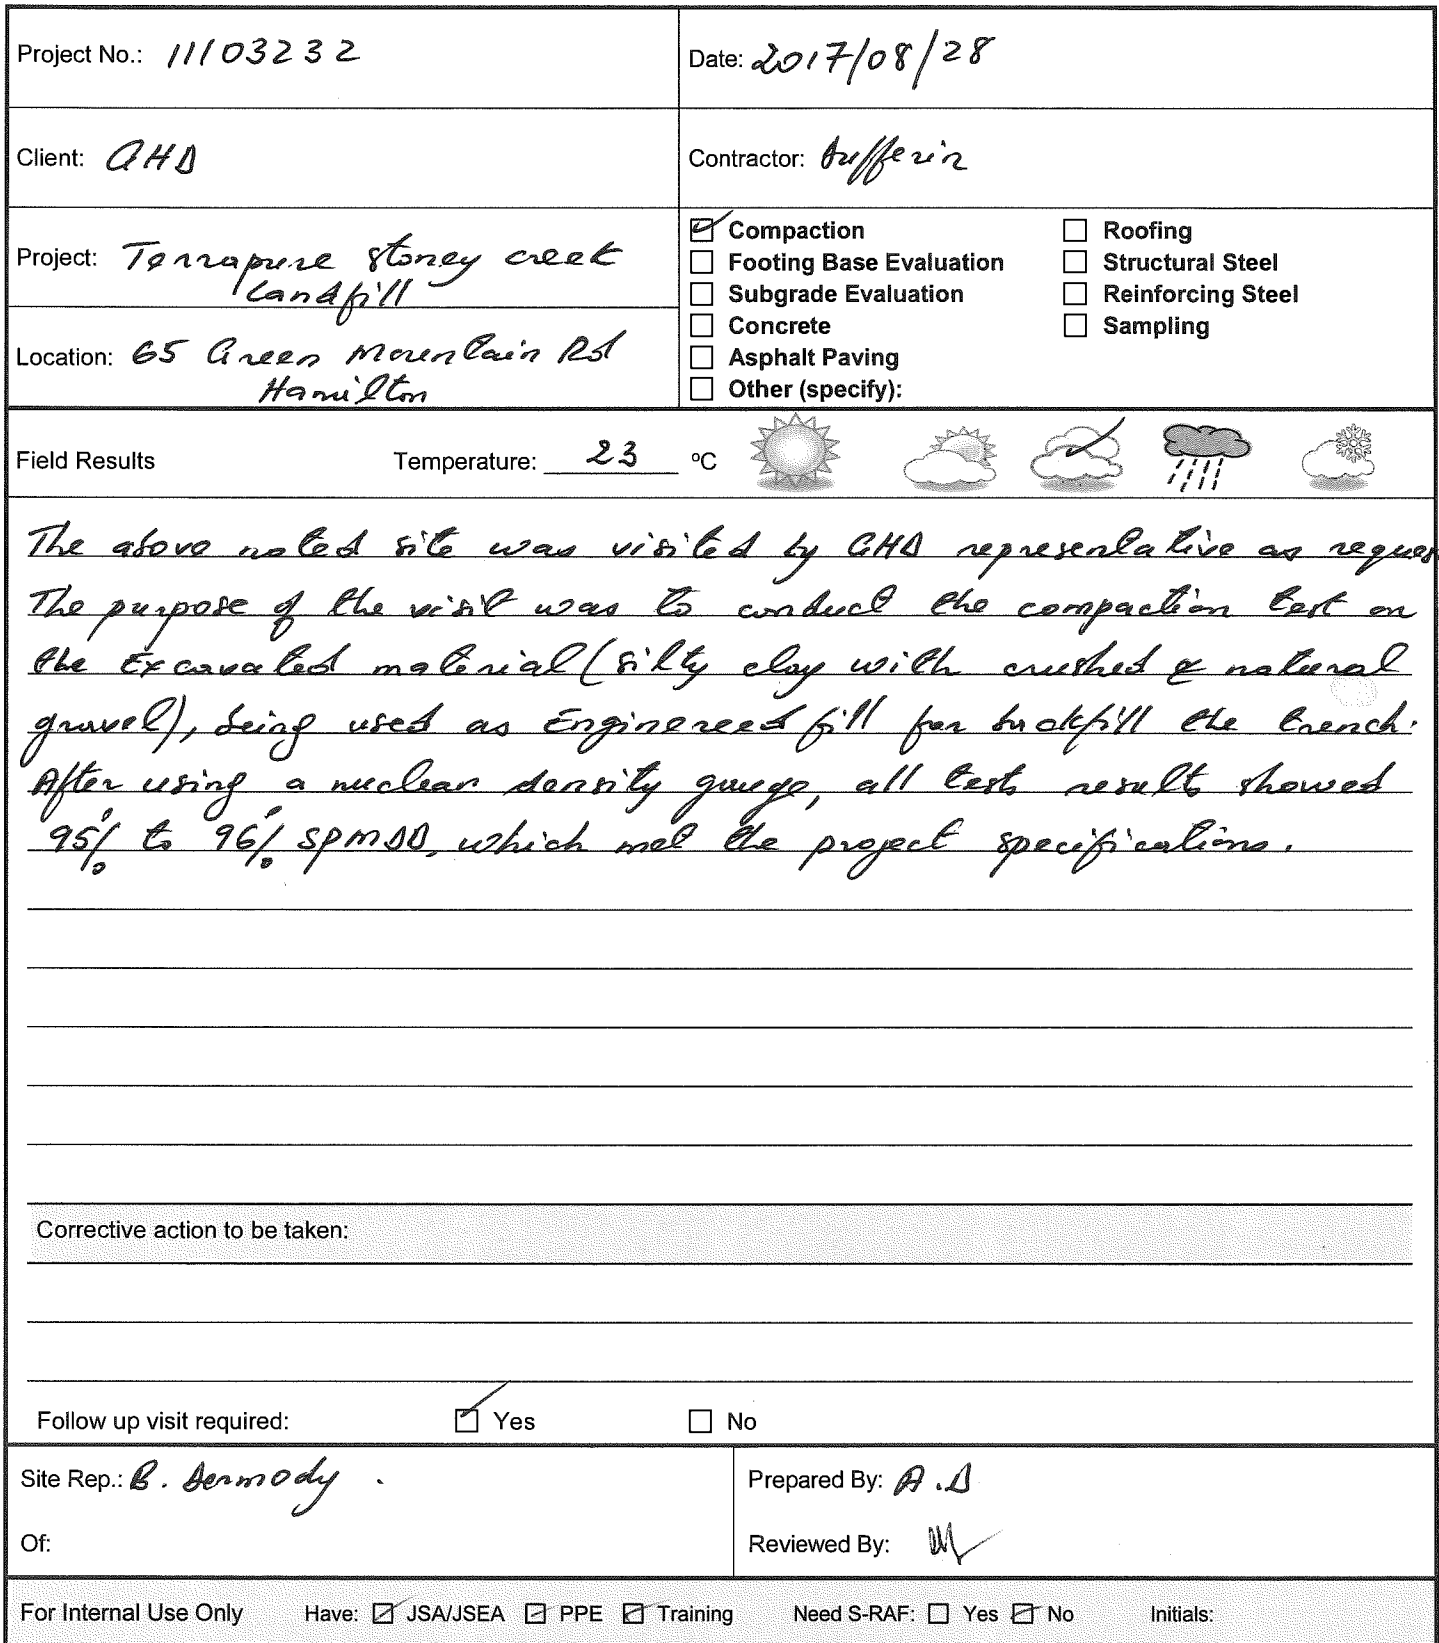 Project No.: 11103232
Date: 2017/08/28
Client: GHD
Contractor: Dufferin
Project: Terrapure Stoney creek
Landfill
Location: 65 Green Mountain Rd
Hamilton
Compaction
Footing Base Evaluation
Subgrade Evaluation
Concrete
Asphalt Paving
Other (specify):
Roofing
Structural Steel
Reinforcing Steel
Sampling
Field Results Temperature: 23 ºC
The above noted site was visited by GHD representative as reques
The purpose of the visit was to conduct the compaction test on
the Excavated material (silty clay with crushed & natural
gravel), being used as Enginereed fill for backfill the trench.
After using a nuclear density gauge, all tests results showed
95% to 96% SPMDD, which met the project specifications.
Corrective action to be taken:
Follow up visit required: Yes No
Site Rep.: B. Dermody.
Of:
Prepared By: A.D
Reviewed By:
For Internal Use Only Have: JSA/JSEA PPE Training Need S-RAF: Yes No Initials: